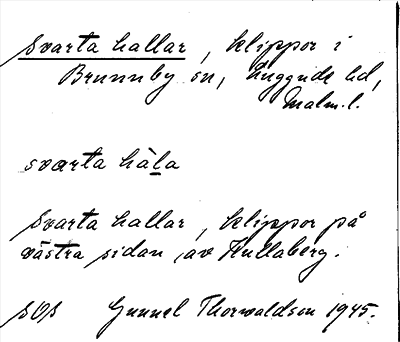 Svarta hallar, klippor i
Brunnby sn, Luggude hd,
Malm.l.
svarta hàla
Svarta hallar, klippor på
västra sidan av Kullaberg.
SOS Gunnel Thorwaldson 1945.